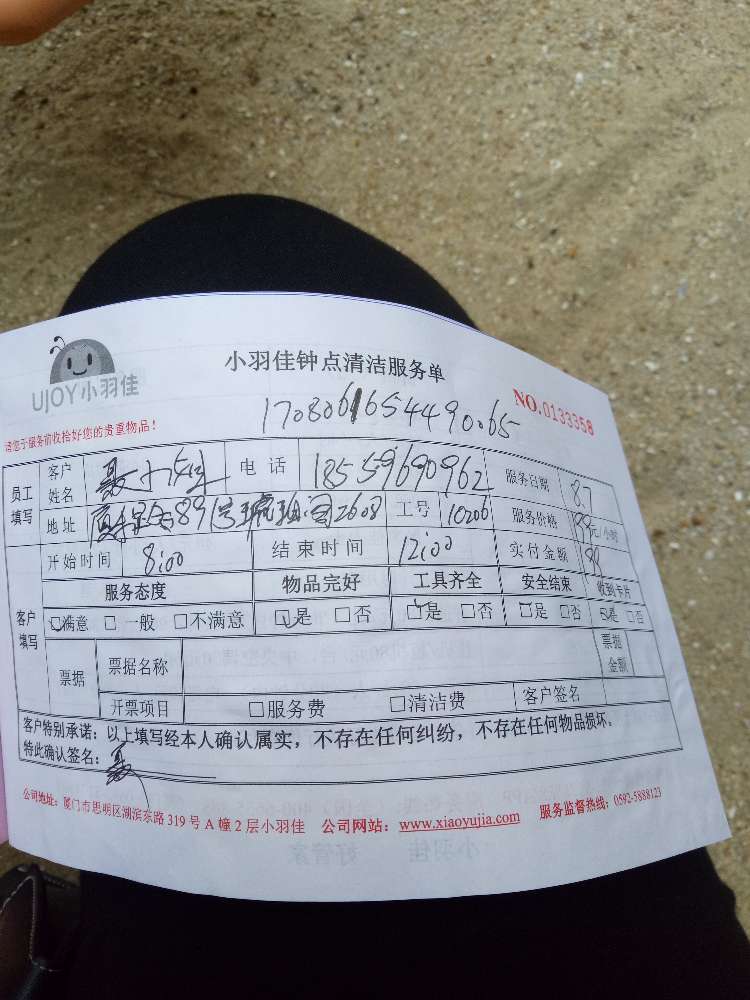 UJOY小羽佳
小羽佳钟点清洁服务单
NO.0133358
请您于服务前收拾好您的贵重物品！
1708061654490065
员工填写 客户姓名 聂小姐 电话 18559690962 服务日期 8.7
地址 89号 2608 工号 10206 服务价格 元/小时
开始时间 8:00 结束时间 12:00 实付金额
客户填写 服务态度 物品完好 工具齐全 安全结束 收到卡片
☑满意 □一般 □不满意 ☑是 □否 ☑是 □否 ☑是 □否 ☑是 □否
票据 票据名称 票据金额
开票项目 □服务费 □清洁费 客户签名
客户特别承诺：以上填写经本人确认属实，不存在任何纠纷，不存在任何物品损坏。
特此确认签名：聂
公司地址：厦门市思明区湖滨东路 319 号 A 幢 2 层小羽佳 公司网站：www.xiaoyujia.com 服务监督热线：0592-5888123